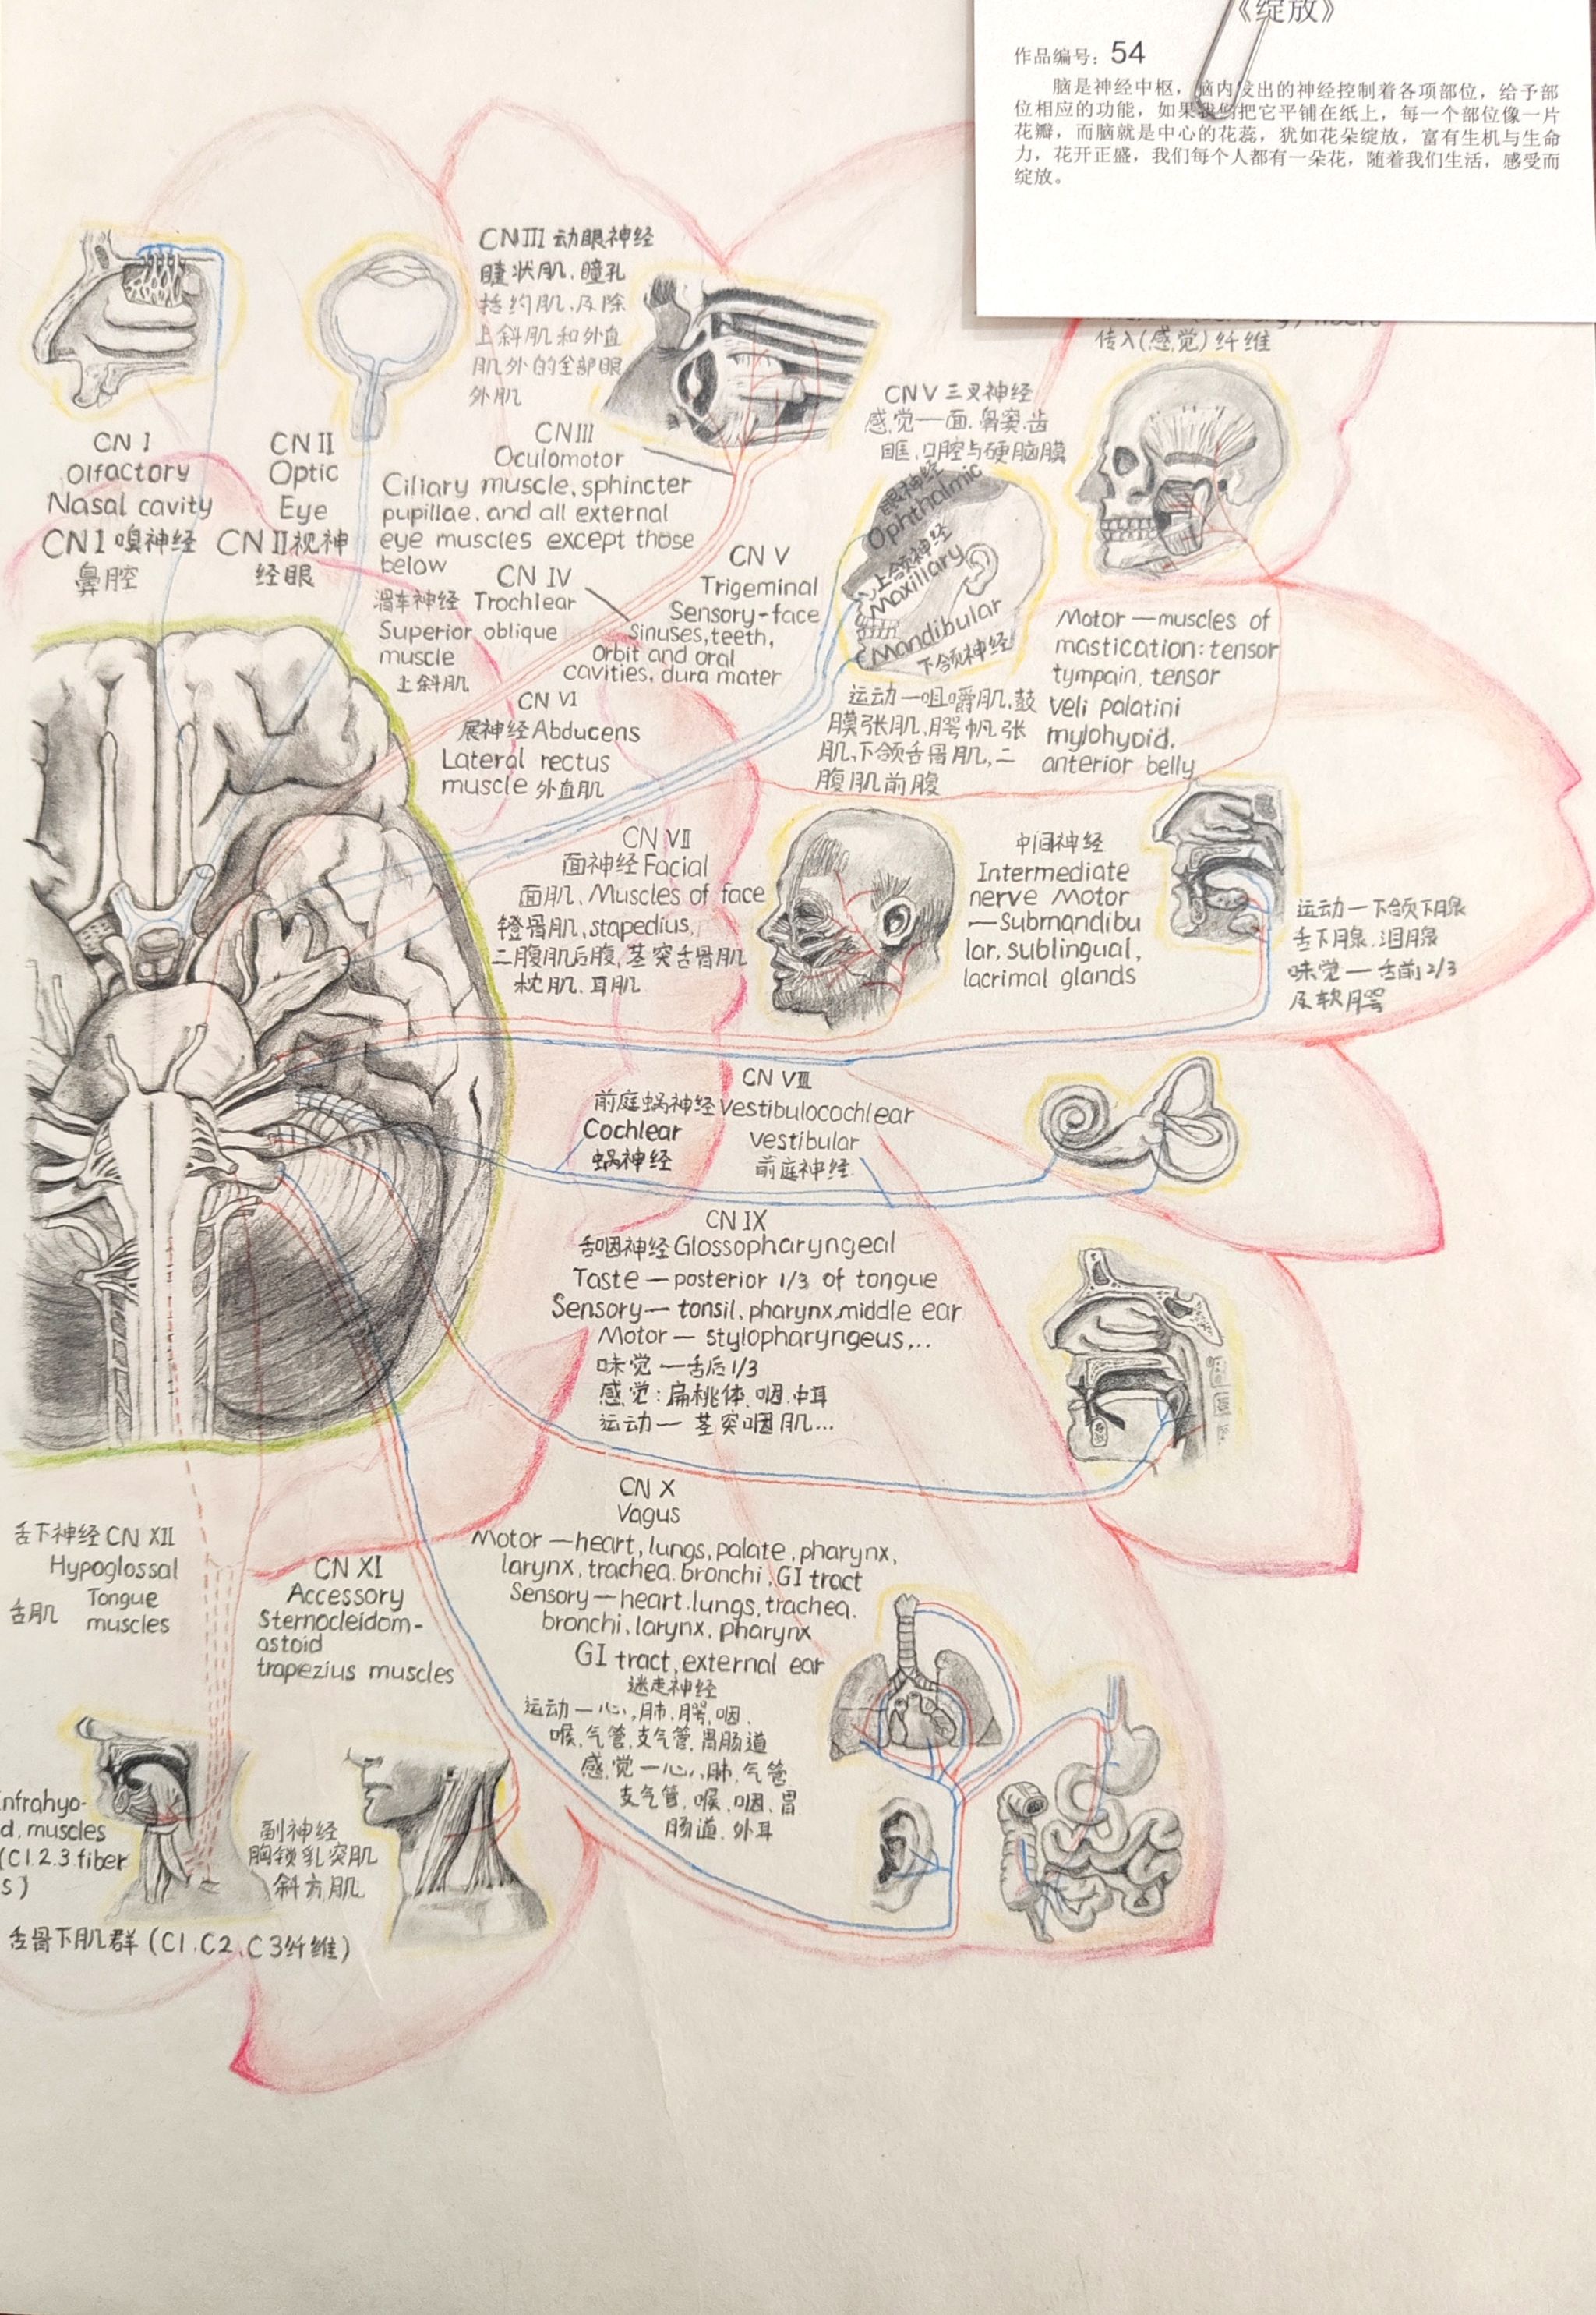 《绽放》
作品编号：54
脑是神经中枢，脑内发出的神经控制着各项部位，给予部
位相应的功能，如果我们把它平铺在纸上，每一个部位像一片
花瓣，而脑就是中心的花蕊，犹如花朵绽放，富有生机与生命
力，花开正盛，我们每个人都有一朵花，随着我们生活，感受而
绽放。
传入(感觉)纤维
CN I
Olfactory
Nasal cavity
CN I 嗅神经
鼻腔
CN II
Optic
Eye
CN II 视神
经眼
CN III 动眼神经
睫状肌、瞳孔
括约肌、及除
上斜肌和外直
肌外的全部眼
外肌
CN III
Oculomotor
Ciliary muscle, sphincter
pupillae, and all external
eye muscles except those
below
CN IV
滑车神经 Trochlear
Superior oblique
muscle
上斜肌
CN VI
展神经 Abducens
Lateral rectus
muscle 外直肌
CN V
Trigeminal
Sensory-face
sinuses, teeth,
orbit and oral
cavities, dura mater
CN V 三叉神经
感觉—面、鼻窦、齿
眶、口腔与硬脑膜
眼神经
Ophthalmic
上颌神经
Maxillary
Mandibular
下颌神经
运动—咀嚼肌、鼓
膜张肌、腭帆张
肌、下颌舌骨肌、二
腹肌前腹
Motor—muscles of
mastication: tensor
tympain, tensor
veli palatini
mylohyoid,
anterior belly
CN VII
面神经 Facial
面肌、Muscles of face
镫骨肌, stapedius,
二腹肌后腹、茎突舌骨肌
枕肌、耳肌
中间神经
Intermediate
nerve Motor
—Submandibu
lar, sublingual,
lacrimal glands
运动—下颌下腺
舌下腺、泪腺
味觉—舌前 2/3
及软腭
CN VIII
前庭蜗神经 Vestibulocochlear
Cochlear
蜗神经
Vestibular
前庭神经
CN IX
舌咽神经 Glossopharyngeal
Taste—posterior 1/3 of tongue
Sensory—tonsil, pharynx, middle ear
Motor—stylopharyngeus,..
味觉—舌后 1/3
感觉：扁桃体、咽、中耳
运动—茎突咽肌...
CN X
Vagus
Motor—heart, lungs, palate, pharynx,
larynx, trachea. bronchi, GI tract
Sensory—heart. lungs, trachea.
bronchi, larynx, pharynx
GI tract, external ear
迷走神经
运动—心、肺、腭、咽、
喉、气管、支气管、胃肠道
感觉—心、肺、气管
支气管、喉、咽、胃
肠道、外耳
舌下神经 CN XII
Hypoglossal
Tongue
舌肌 muscles
CN XI
Accessory
Sternocleidom-
astoid
trapezius muscles
nfrahyo-
d. muscles
(C1.2.3 fiber
s)
副神经
胸锁乳突肌
斜方肌
舌骨下肌群 (C1、C2、C3纤维)